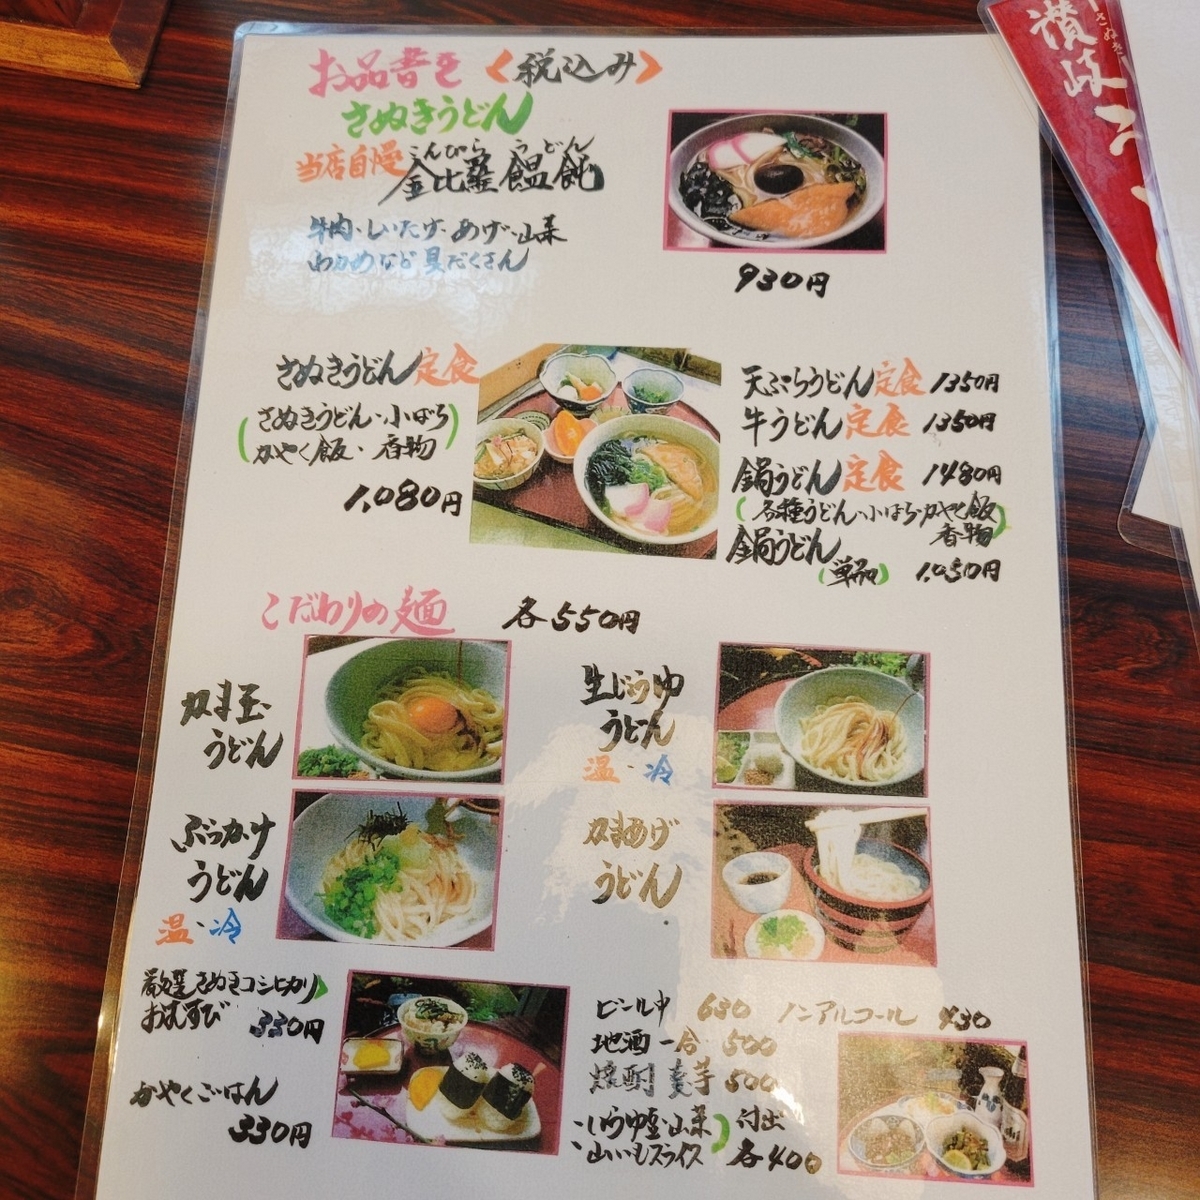 お品書き <税込み>
さぬきうどん
当店自慢 金比羅饂飩
こんぴら うどん
牛肉・しいたけ・あげ・山菜
わかめなど具だくさん
930円
さぬきうどん定食
(さぬきうどん・小ばち
かやく飯・香物)
1,080円
天ぷらうどん定食 1350円
牛うどん定食 1350円
鍋うどん定食 1480円
(各種うどん・小ばち・かやく飯
香物)
鍋うどん
(単品) 1,050円
こだわりの麺 各550円
かま玉
うどん
生じょうゆ
うどん
温・冷
ぶっかけ
うどん
温・冷
かまあげ
うどん
厳選さぬきコシヒカリ
おむすび 330円
かやくごはん
330円
ビール中 630 ノンアルコール 430
地酒一合 500
焼酎 麦芋 500
・しょうゆ豆・山菜
・山いもスライス
付出
各400
讃岐
さぬき